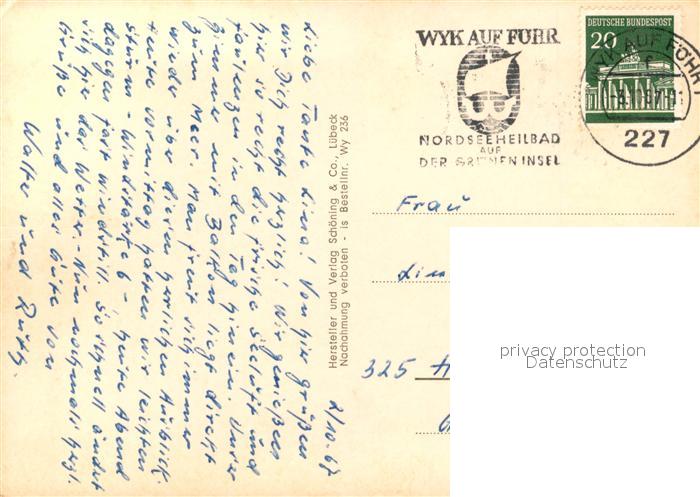 2/10.67
Liebe Tante Lina! Von hier grüßen
wir Dich recht herzlich! Wir genießen
hier so recht die frische Seeluft und
faulenzen in den Tag hinein. Unser
Zimmer mit Balkon liegt direkt
zum Meer. Man freut sich immer
wieder über diesen herrlichen Ausblick.
Heute vormittag hatten wir leichten
Sturm - Windstärke 6 - heute Abend
dagegen fast windstill. So schnell ändert
sich hier das Wetter. - Nun nochmals herzl.
Grüße und alles Gute von
Walter und Ruth.
Hersteller und Verlag Schöning & Co., Lübeck
Nachahmung verboten - is Bestellnr. Wy 236
WYK AUF FÖHR
NORDSEEHEILBAD
AUF
DER GRÜNEN INSEL
DEUTSCHE BUNDESPOST
20
WYK AUF FÖHR
227
Frau
Lin
325
privacy protection
www.ansichtskartenversand.com